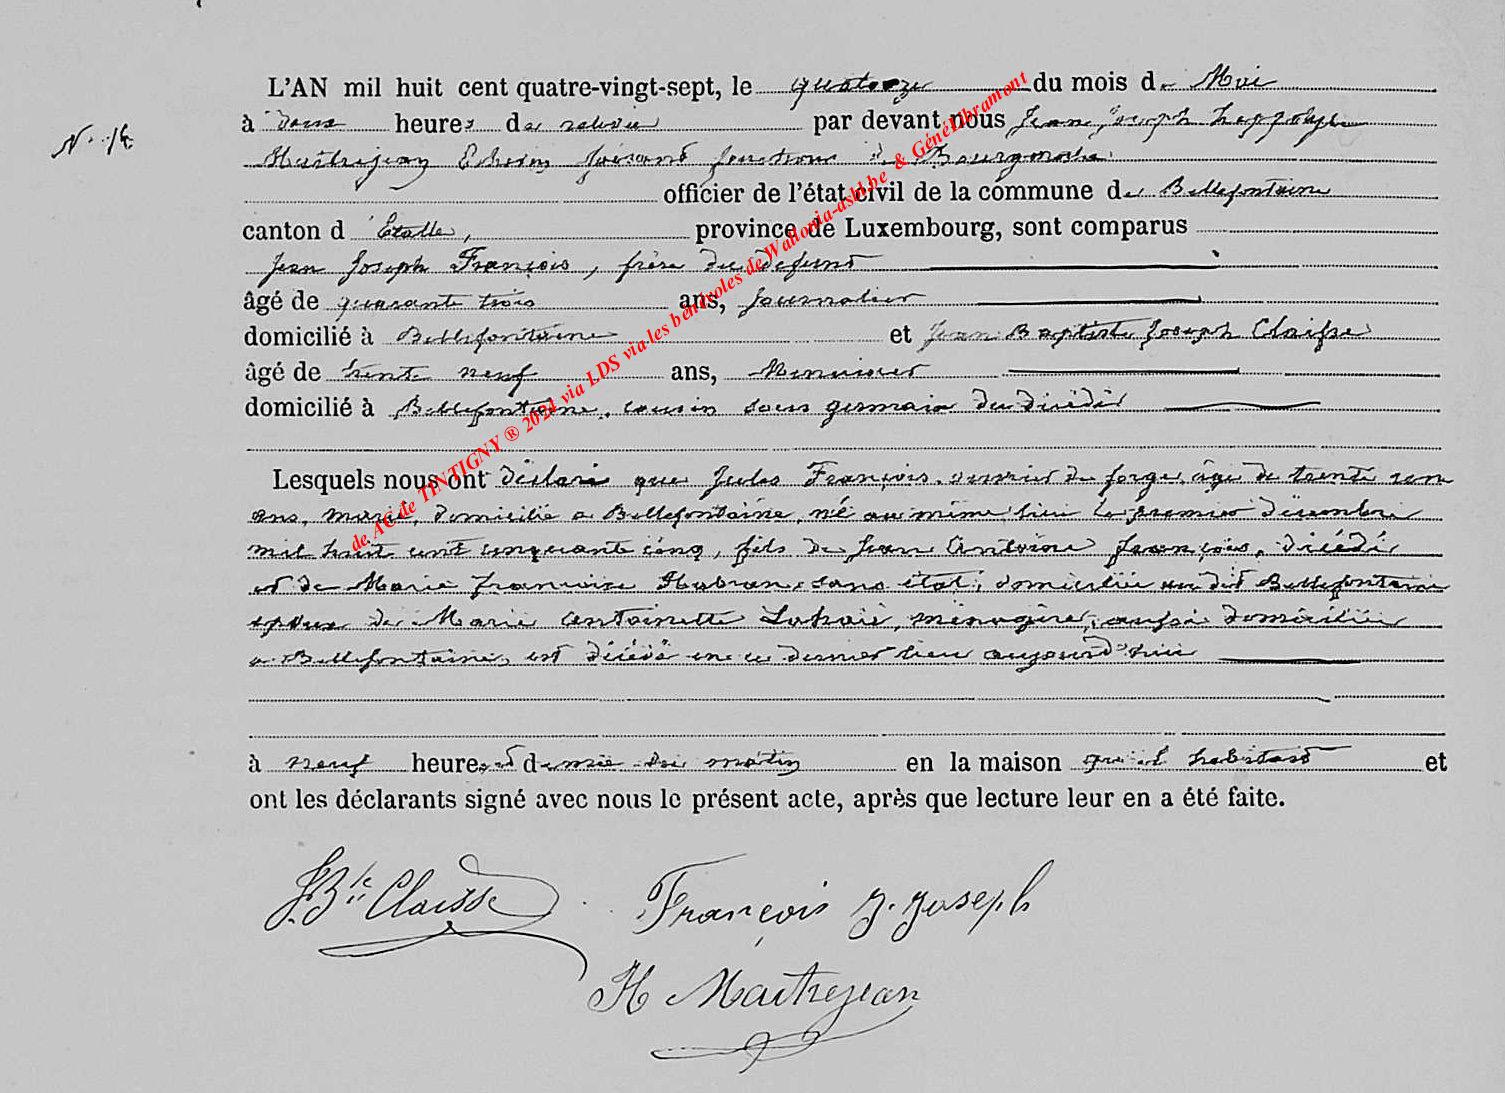 L'AN mil huit cent quatre-vingt-sept, le quatorze du mois de Mai
N.
à heures de relevée par devant nous Jean Joseph hyppolyte
Maitrejean Echevin faisant fonctions de Bourgmestre
officier de l'état civil de la commune de Bellefontaine
canton d'Etalle, province de Luxembourg, sont comparus
Jean Joseph François, frère du defunt
âgé de quarante trois ans, Journalier
domicilié à Bellefontaine et Jean Baptiste Joseph Claisse
âgé de trente neuf ans, Menuisier
domicilié à Bellefontaine, cousin sous germain du décédé
Lesquels nous ont déclaré que Jules François, ouvrier de forge, âgé de trente
ans, marié, domicilié a Bellefontaine, né au même lieu le premier décembre
mil huit cent cinquante cinq, fils de Jean Antoine François, décédé
et de Marie françoise Habran, sans état, domiciliée au dit Bellefontaine
epoux de Marie Antoinette Lahaie, ménagère, aussi domiciliée
a Bellefontaine, est décédé en ce dernier lieu aujourd'hui
à neuf heures et demie du matin en la maison qu'il habitait et
ont les déclarants signé avec nous le présent acte, après que lecture leur en a été faite.
J.Bte Claisse François J. Joseph
H Maitrejean
de AC de TINTIGNY ® 2024 via LDS via les bénévoles de Wallonia-asbl.be & GénéLibramont